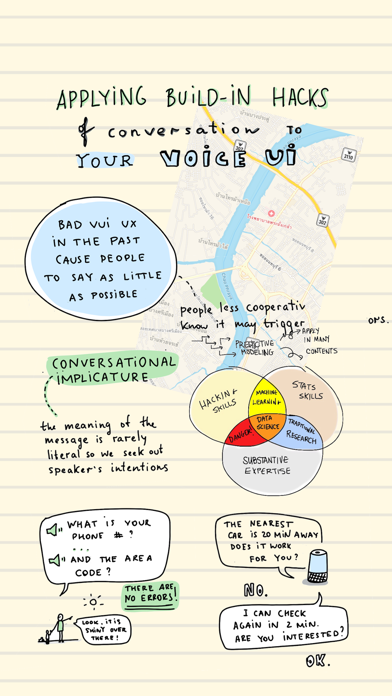 APPLYING BUILD-IN HACKS
of conversation TO
YOUR VOICE UI
BAD VUI UX
IN THE PAST
CAUSE PEOPLE
TO SAY AS LITTLE
AS POSSIBLE
3110
302
people less cooperativ
know it may trigger
PREDICTIVE
MODELING
APPLY
IN MANY
CONTENTS
CONVERSATIONAL
IMPLICATURE
the meaning of the
message is rarely
literal so we seek out
speaker's intentions
HACKING
SKILLS
MACHINE
LEARNING
STATS
SKILLS
DATA
SCIENCE
DANGER
TRADITIONAL
RESEARCH
SUBSTANTIVE
EXPERTISE
WHAT IS YOUR
PHONE #?
...
AND THE AREA
CODE?
THERE ARE
NO ERRORS!
LOOK, IT IS
SHINY OVER
THERE!
THE NEAREST
CAR IS 20 MIN AWAY
DOES IT WORK
FOR YOU?
NO.
I CAN CHECK
AGAIN IN 2 MIN.
ARE YOU INTERESTED?
OK.